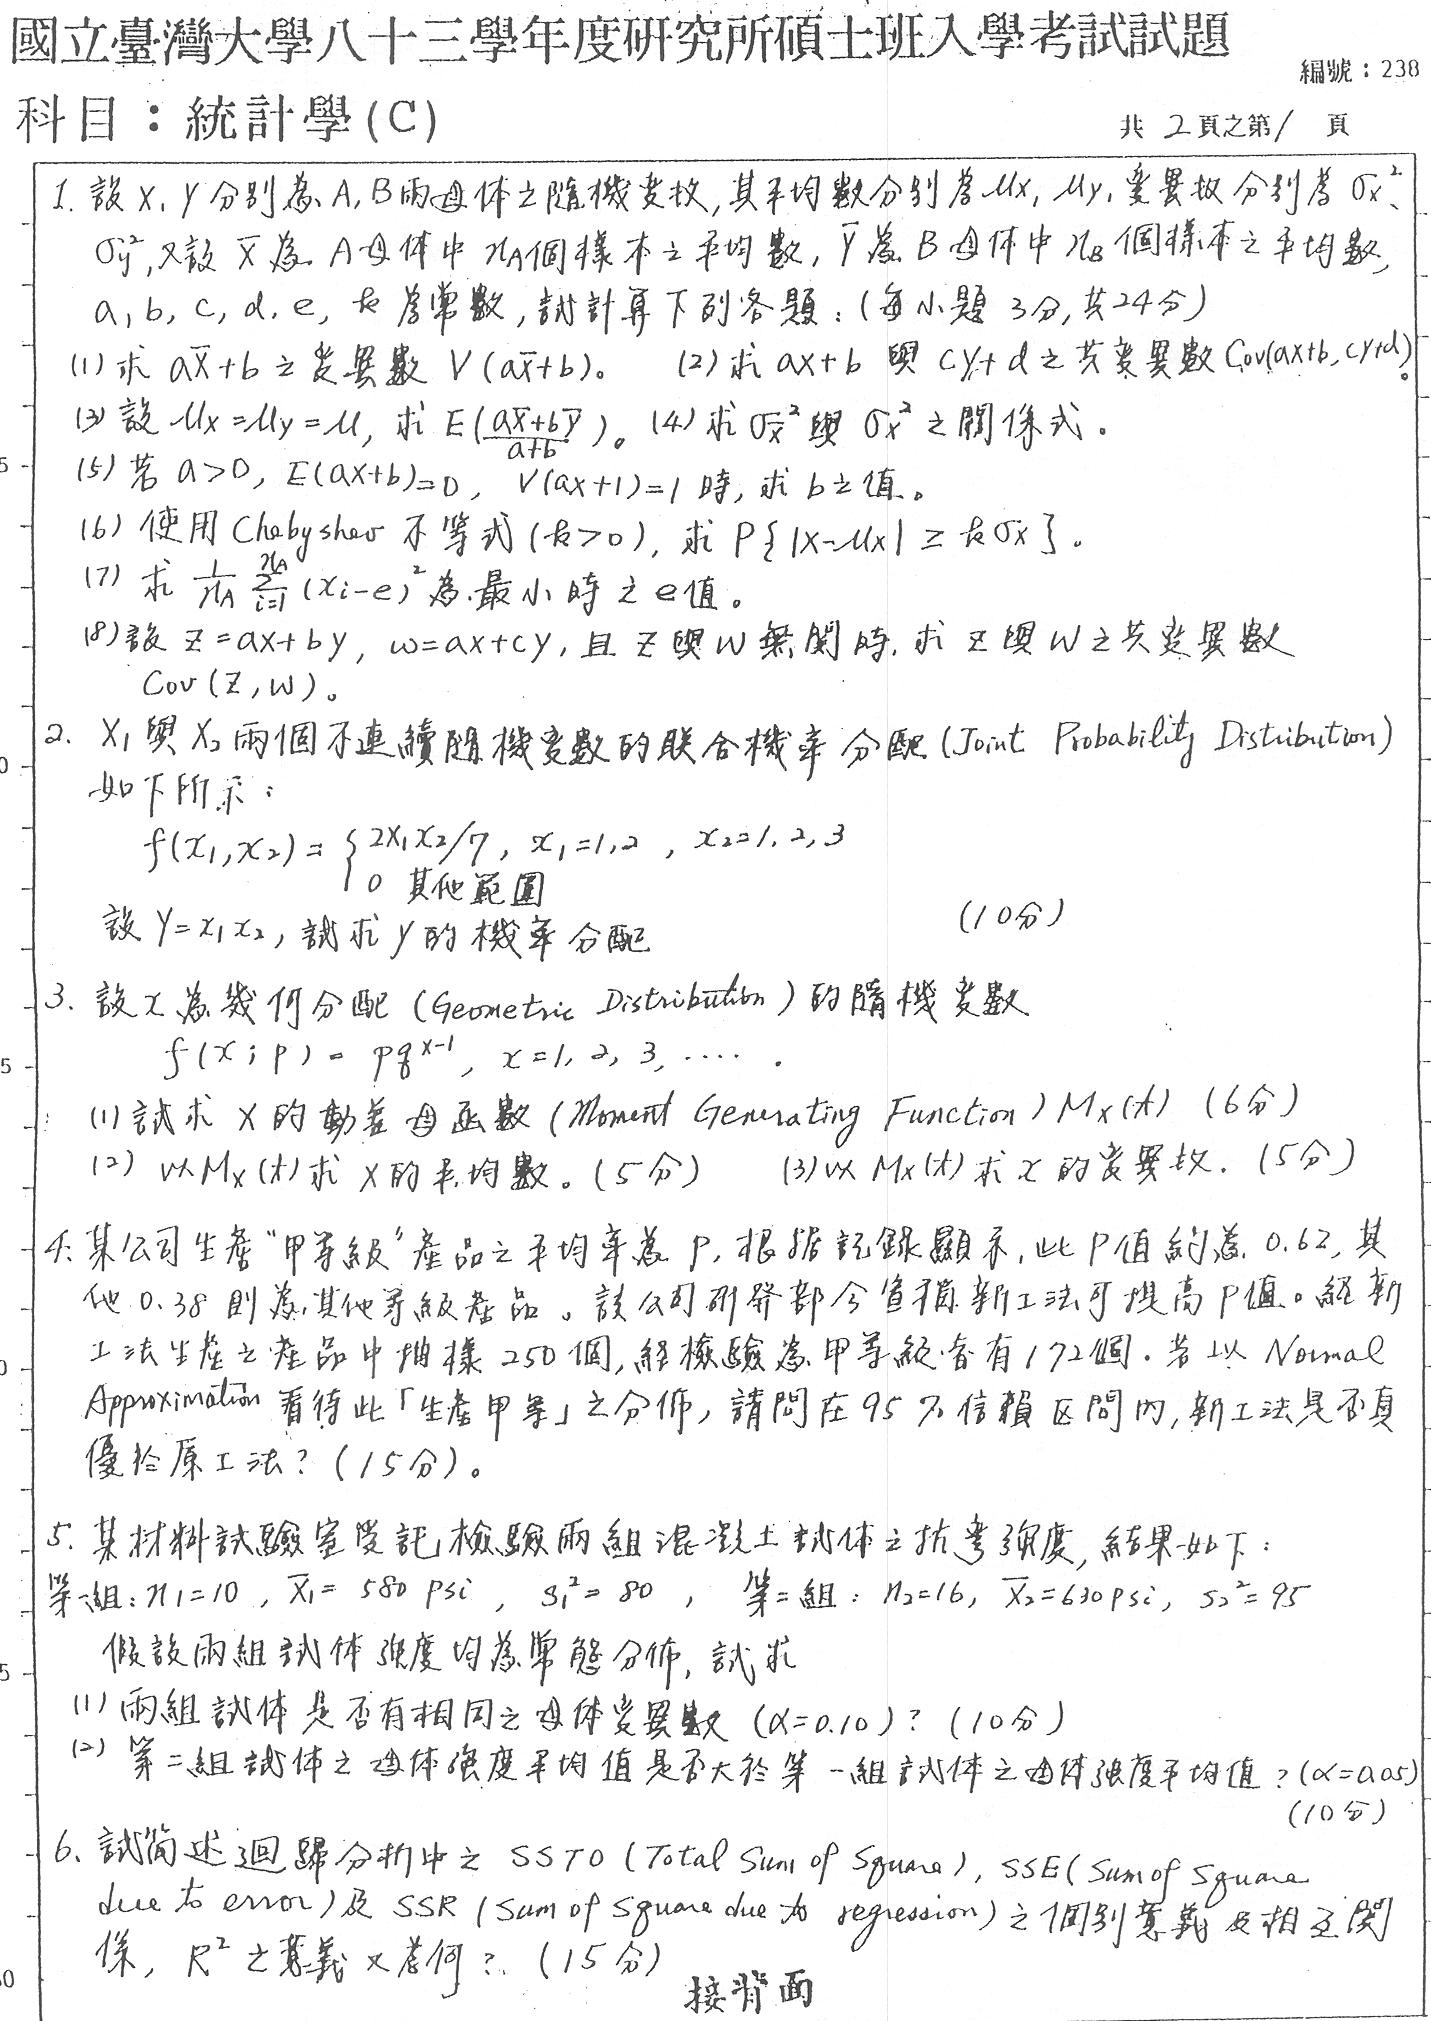 國立臺灣大學八十三學年度研究所碩士班入學考試試題
編號：238
科目：統計學(C)
共 2 頁之第 1 頁
1. 設 X, Y 分別為 A, B 兩母体之隨機変数, 其平均數分別為 μx, μy, 変異数分別為 σx²、
σy², 又設 X̄ 為 A 母体中 nA 個樣本之平均數, Ȳ 為 B 母体中 nB 個樣本之平均數,
a, b, c, d, e, k 為常數, 試計算下列各題：(每小題 3分, 共24分)
(1) 求 aX̄+b 之変異數 V(aX̄+b)。 (2) 求 aX+b 與 cY+d 之共変異數 Cov(aX+b, cY+d)。
(3) 設 μx=μy=μ, 求 E((aX̄+bȲ)/(a+b))。 (4) 求 σx̄² 與 σx² 之關係式。
(5) 若 a>0, E(aX+b)=0, V(aX+1)=1 時, 求 b 之值。
(6) 使用 Chebyshev 不等式 (k>0), 求 P{|X-μx| ≥ kσx}。
(7) 求 1/nA Σ_{i=1}^{nA} (xi-e)² 為最小時之 e 值。
(8) 設 Z=aX+bY, W=aX+cY, 且 Z 與 W 無関時, 求 Z 與 W 之共変異數
Cov(Z, W)。
2. X₁ 與 X₂ 兩個不連續隨機変數的联合機率分配 (Joint Probability Distribution)
如下所示：
f(x₁, x₂) = { 2x₁x₂/7, x₁=1,2 , x₂=1, 2, 3
0 其他範圍
設 Y=x₁x₂, 試求 y 的機率分配 (10分)
3. 設 x 為幾何分配 (Geometric Distribution) 的隨機変數
f(x; p) = pq^{x-1}, x=1, 2, 3, ‥‥.
(1) 試求 X 的動差母函數 (Moment Generating Function) Mx(t) (6分)
(2) 以 Mx(t) 求 X 的平均數。(5分) (3) 以 Mx(t) 求 x 的変異数. (5分)
4. 某公司生產“甲等級”產品之平均率為 P, 根据記錄顯示, 此 P 值約為 0.62, 其
他 0.38 則為其他等級產品。該公司研發部今宣稱新工法可提高 P 值。經新
工法生產之產品中抽樣 250 個, 經檢驗為甲等級者有 172 個. 若以 Normal
Approximation 看待此「生產甲等」之分佈, 請問在 95% 信賴区間內, 新工法是否真
優於原工法？(15分)。
5. 某材料試驗室受託檢驗兩組混凝土試体之抗彎強度, 結果如下：
第一組: n₁=10 , X̄₁= 580 psi , s₁²= 80 , 第二組: n₂=16, X̄₂=630 psi, s₂²=95
假設兩組試体強度均為常態分佈, 試求
(1) 兩組試体是否有相同之母体変異數 (α=0.10)？(10分)
(2) 第二組試体之母体強度平均值是否大於第一組試体之母体強度平均值？(α=0.05)
(10分)
6. 試簡述迴歸分析中之 SSTO (Total Sum of Square), SSE (Sum of Square
due to error) 及 SSR (Sum of Square due to regression) 之個別意義及相互関
係, R² 之意義又為何？ (15分)
接背面
5
0
5
0
5
30